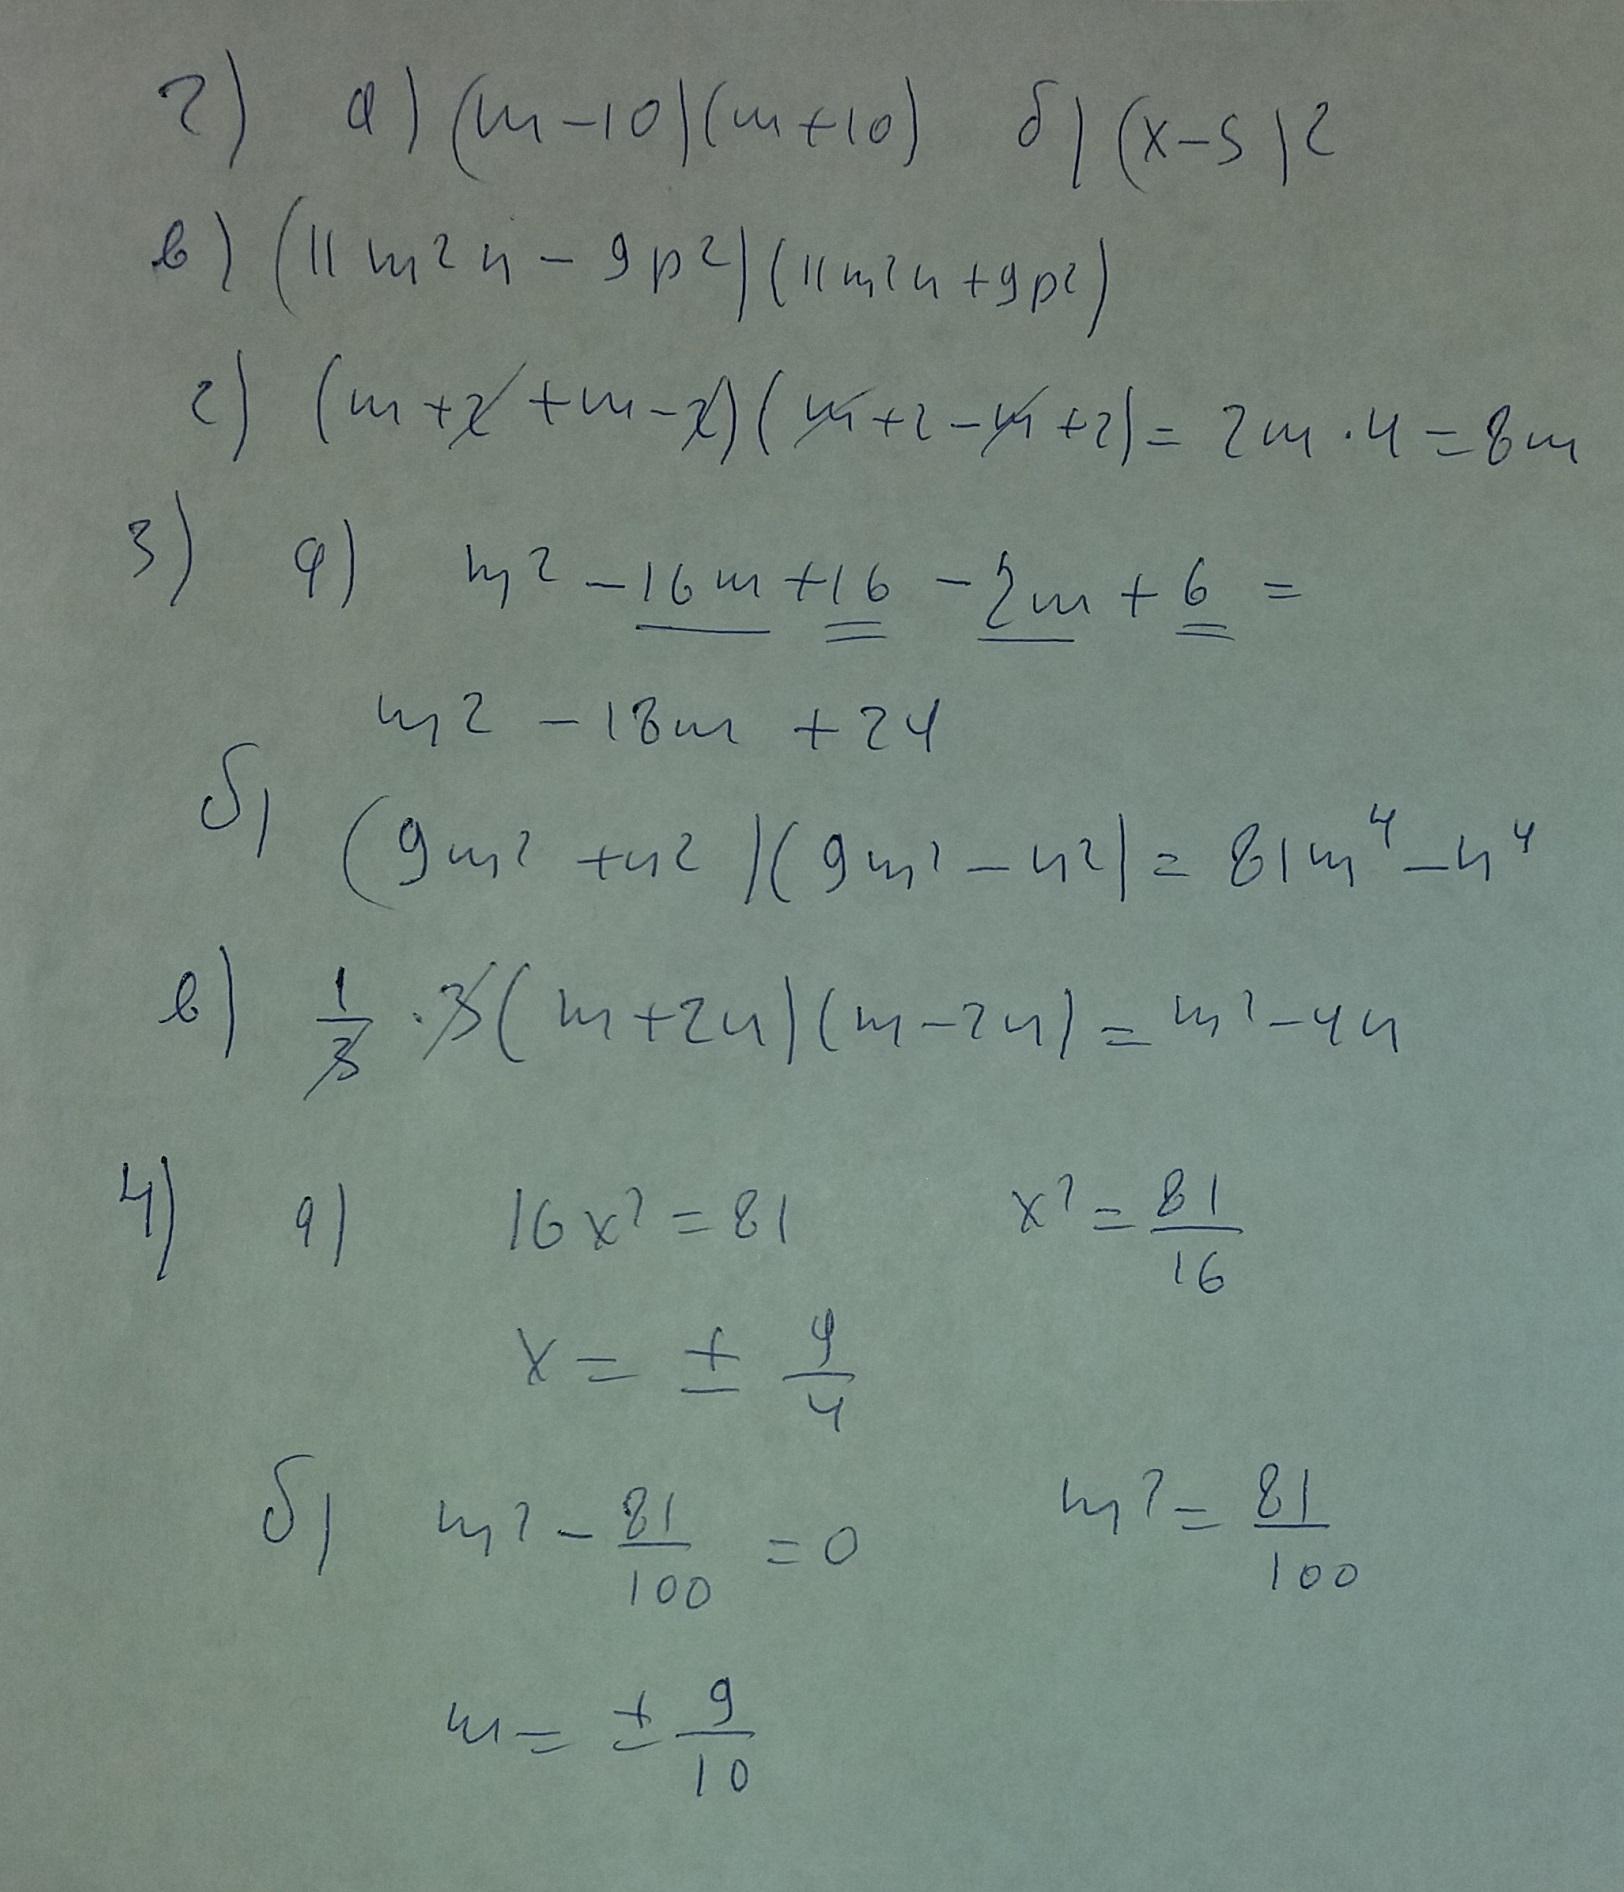 2) а) (m-10)(m+10) б) (x-5)²
в) (11m²n - 9p²)(11m²n+9p²)
г) (m+2+m-2)(m+2-m+2)= 2m·4=8m
3) а) m²-16m+16-2m+6=
m²-18m+24
б) (9m²+n²)(9m²-n²)=81m⁴-n⁴
в) 1/3·3(m+2n)(m-2n)=m²-4n
4) а) 16x²=81 x²=81/16
x=±9/4
б) m²-81/100=0 m²=81/100
m=±9/10